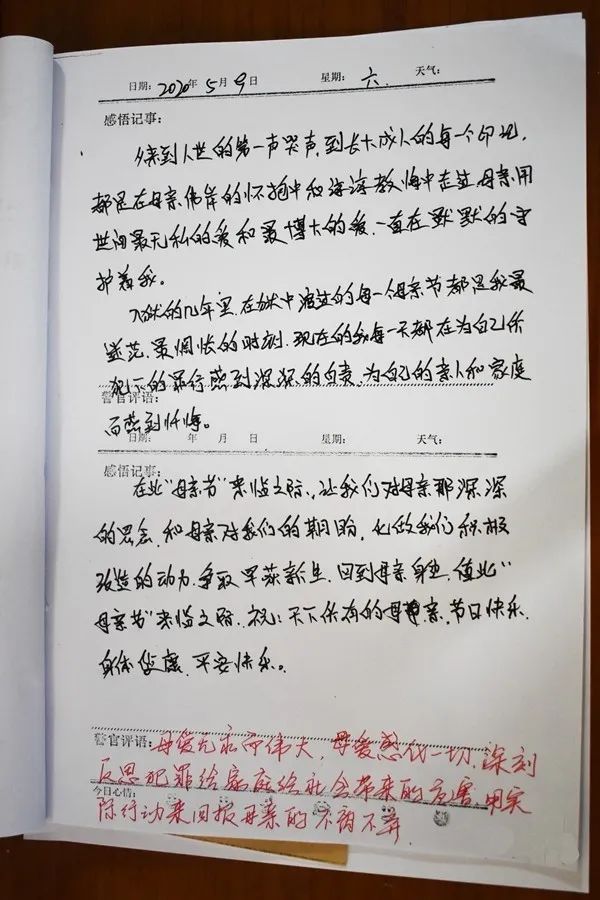 日期：2020年5月9日 星期：六 天气：
感悟记事：
来到人世的第一声哭声，到长大成人的每一个印记，
都是在母亲伟岸的怀抱中和谆谆教悔中走过，母亲用
世间最无私的爱和最博大的爱，一直在默默的守
护着我。
入狱的几年里，在狱中渡过的每一个母亲节都是我最
迷茫，最惆怅的时刻，现在的我每一天都在为自己所
犯下的罪行感到深深的自责，为自己的亲人和家庭
警官评语：
而感到忏悔。
日期： 年 月 日 星期： 天气：
感悟记事：
在此“母亲节”来临之际，让我们对母亲那深深
的思念，和母亲对我们的期盼，化做我们积极
改造的动力，争取早获新生，回到母亲身边，值此“
母亲节”来临之际，祝：天下所有的母亲，节日快乐，
身体健康，平安快乐。
警官评语：母爱无求而伟大，母爱感化一切，深刻
反思犯罪给家庭给社会带来的危害，用实
今日心情：
际行动来回报母亲的不离不弃